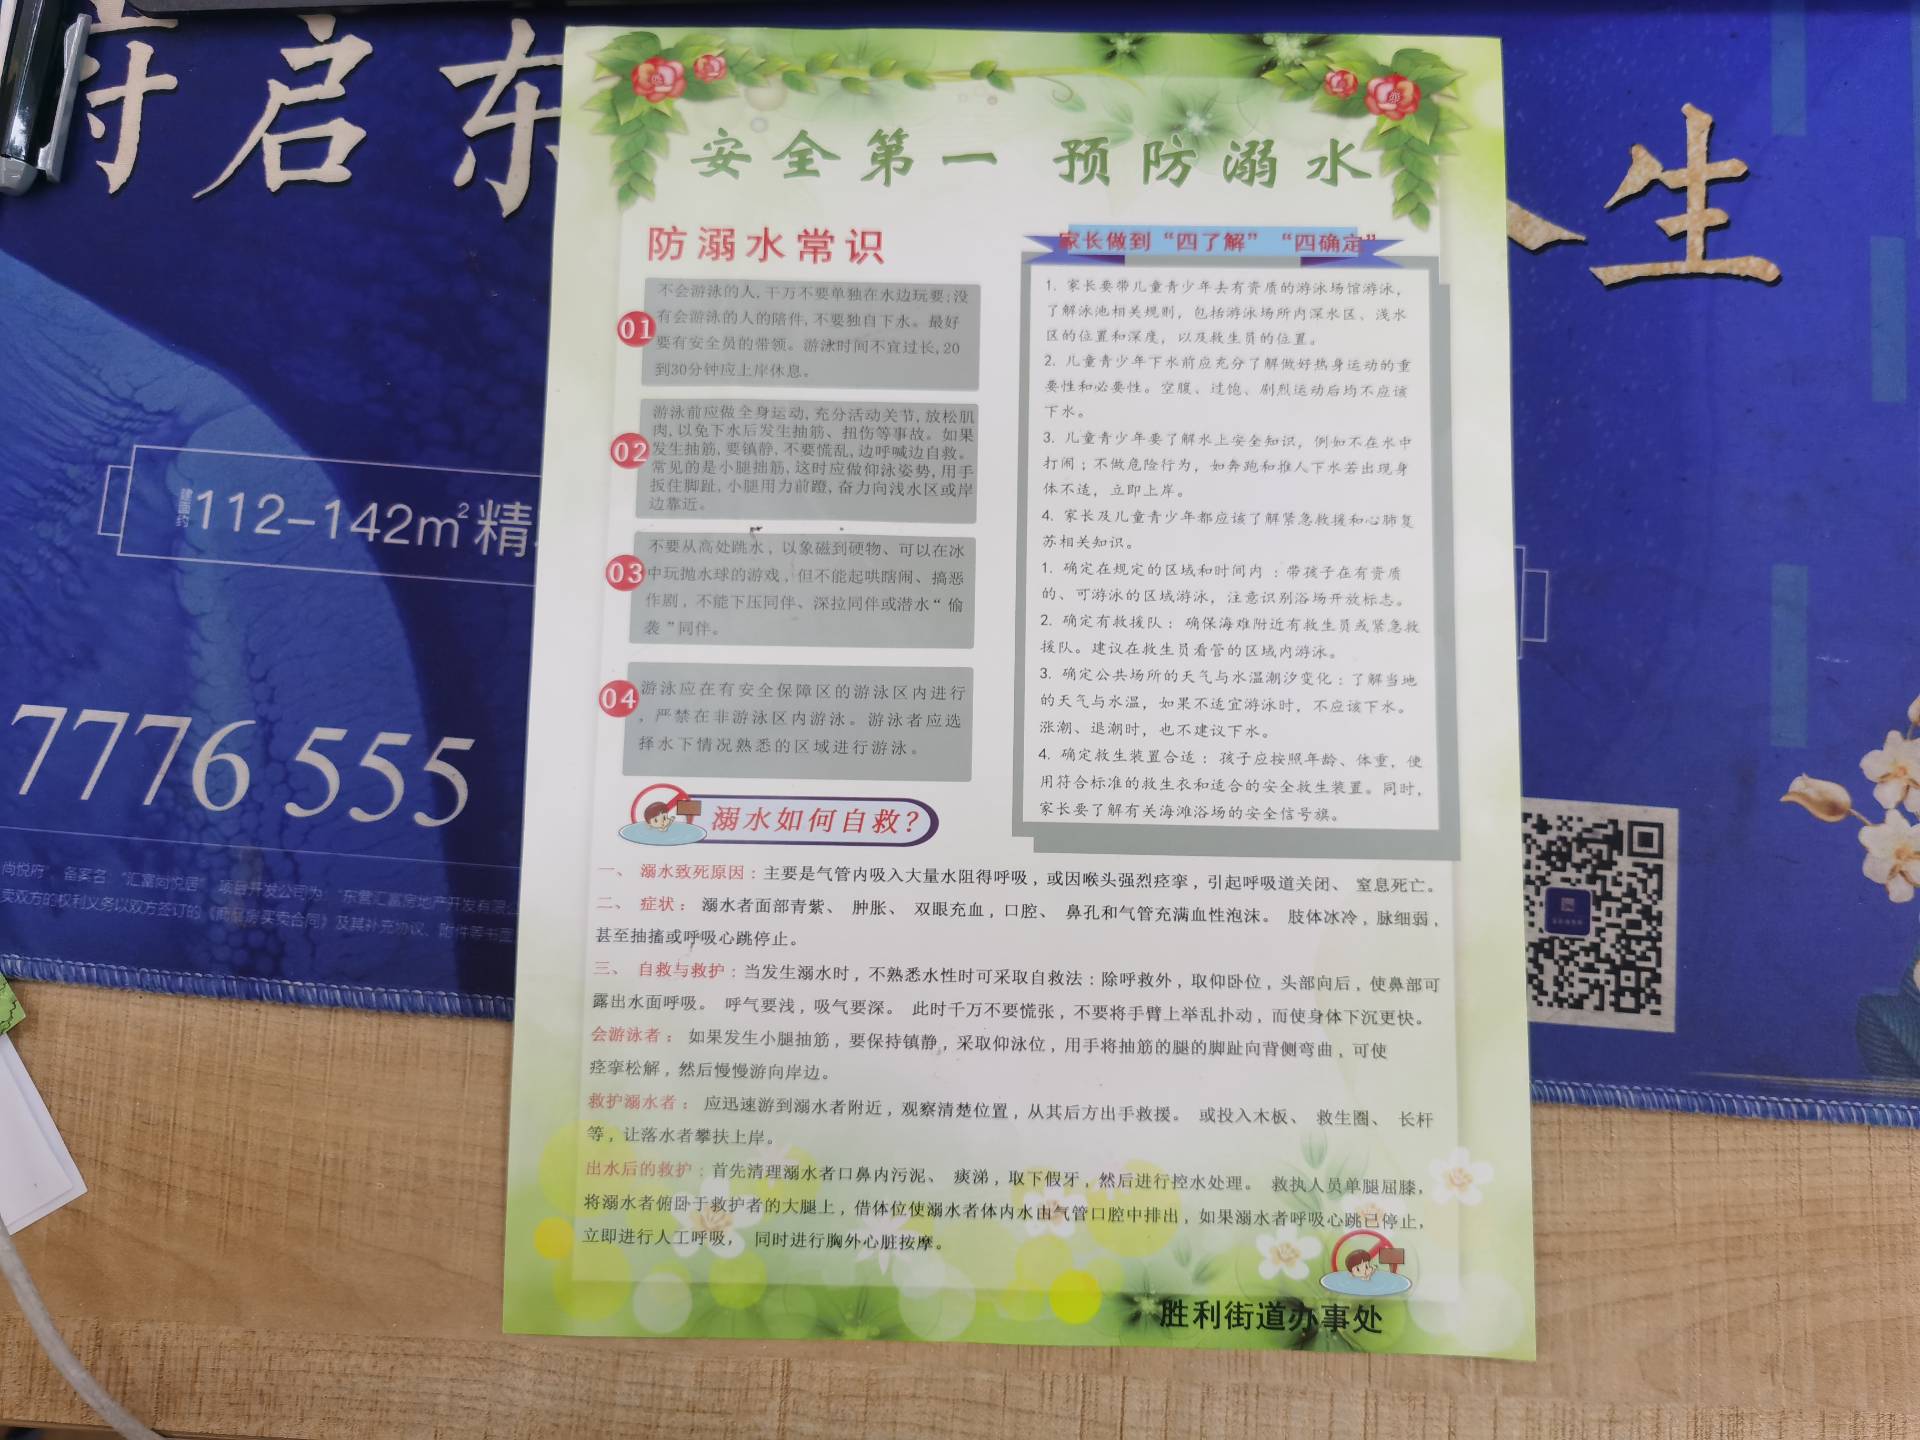 安全第一 预防溺水
防溺水常识
01
不会游泳的人,千万不要单独在水边玩耍;没
有会游泳的人的陪伴,不要独自下水。最好
要有安全员的带领。游泳时间不宜过长,20
到30分钟应上岸休息。
02
游泳前应做全身运动,充分活动关节,放松肌
肉,以免下水后发生抽筋、扭伤等事故。如果
发生抽筋,要镇静,不要慌乱,边呼喊边自救。
常见的是小腿抽筋,这时应做仰泳姿势,用手
扳住脚趾,小腿用力前蹬,奋力向浅水区或岸
边靠近。
03
不要从高处跳水，以象磁到硬物、可以在冰
中玩抛水球的游戏，但不能起哄瞎闹、搞恶
作剧，不能下压同伴、深拉同伴或潜水“偷
袭”同伴。
04
游泳应在有安全保障区的游泳区内进行
，严禁在非游泳区内游泳。游泳者应选
择水下情况熟悉的区域进行游泳。
家长做到“四了解”“四确定”
1. 家长要带儿童青少年去有资质的游泳场馆游泳，
了解泳池相关规则，包括游泳场所内深水区、浅水
区的位置和深度，以及救生员的位置。
2. 儿童青少年下水前应充分了解做好热身运动的重
要性和必要性。空腹、过饱、剧烈运动后均不应该
下水。
3. 儿童青少年要了解水上安全知识，例如不在水中
打闹；不做危险行为，如奔跑和推人下水若出现身
体不适，立即上岸。
4. 家长及儿童青少年都应该了解紧急救援和心肺复
苏相关知识。
1. 确定在规定的区域和时间内：带孩子在有资质
的、可游泳的区域游泳，注意识别浴场开放标志。
2. 确定有救援队：确保海难附近有救生员或紧急救
援队。建议在救生员看管的区域内游泳。
3. 确定公共场所的天气与水温潮汐变化：了解当地
的天气与水温，如果不适宜游泳时，不应该下水。
涨潮、退潮时，也不建议下水。
4. 确定救生装置合适：孩子应按照年龄、体重，使
用符合标准的救生衣和适合的安全救生装置。同时，
家长要了解有关海滩浴场的安全信号旗。
溺水如何自救？
一、 溺水致死原因：主要是气管内吸入大量水阻得呼吸，或因喉头强烈痉挛，引起呼吸道关闭、 窒息死亡。
二、 症状： 溺水者面部青紫、 肿胀、 双眼充血，口腔、 鼻孔和气管充满血性泡沫。 肢体冰冷，脉细弱，
甚至抽搐或呼吸心跳停止。
三、 自救与救护：当发生溺水时，不熟悉水性时可采取自救法：除呼救外，取仰卧位，头部向后，使鼻部可
露出水面呼吸。 呼气要浅，吸气要深。 此时千万不要慌张，不要将手臂上举乱扑动，而使身体下沉更快。
会游泳者： 如果发生小腿抽筋，要保持镇静，采取仰泳位，用手将抽筋的腿的脚趾向背侧弯曲，可使
痉挛松解，然后慢慢游向岸边。
救护溺水者： 应迅速游到溺水者附近，观察清楚位置，从其后方出手救援。 或投入木板、 救生圈、 长杆
等，让落水者攀扶上岸。
出水后的救护：首先清理溺水者口鼻内污泥、 痰涕，取下假牙，然后进行控水处理。 救执人员单腿屈膝，
将溺水者俯卧于救护者的大腿上，借体位使溺水者体内水由气管口腔中排出，如果溺水者呼吸心跳已停止，
立即进行人工呼吸， 同时进行胸外心脏按摩。
胜利街道办事处
启东
生
建面约112-142m²精
7776 555
尚悦府 备案名：“汇富尚悦居” 项目开发公司为：东营汇富房地产开发有限公
卖双方的权利义务以双方签订的《商品房买卖合同》及其补充协议、附件等书面